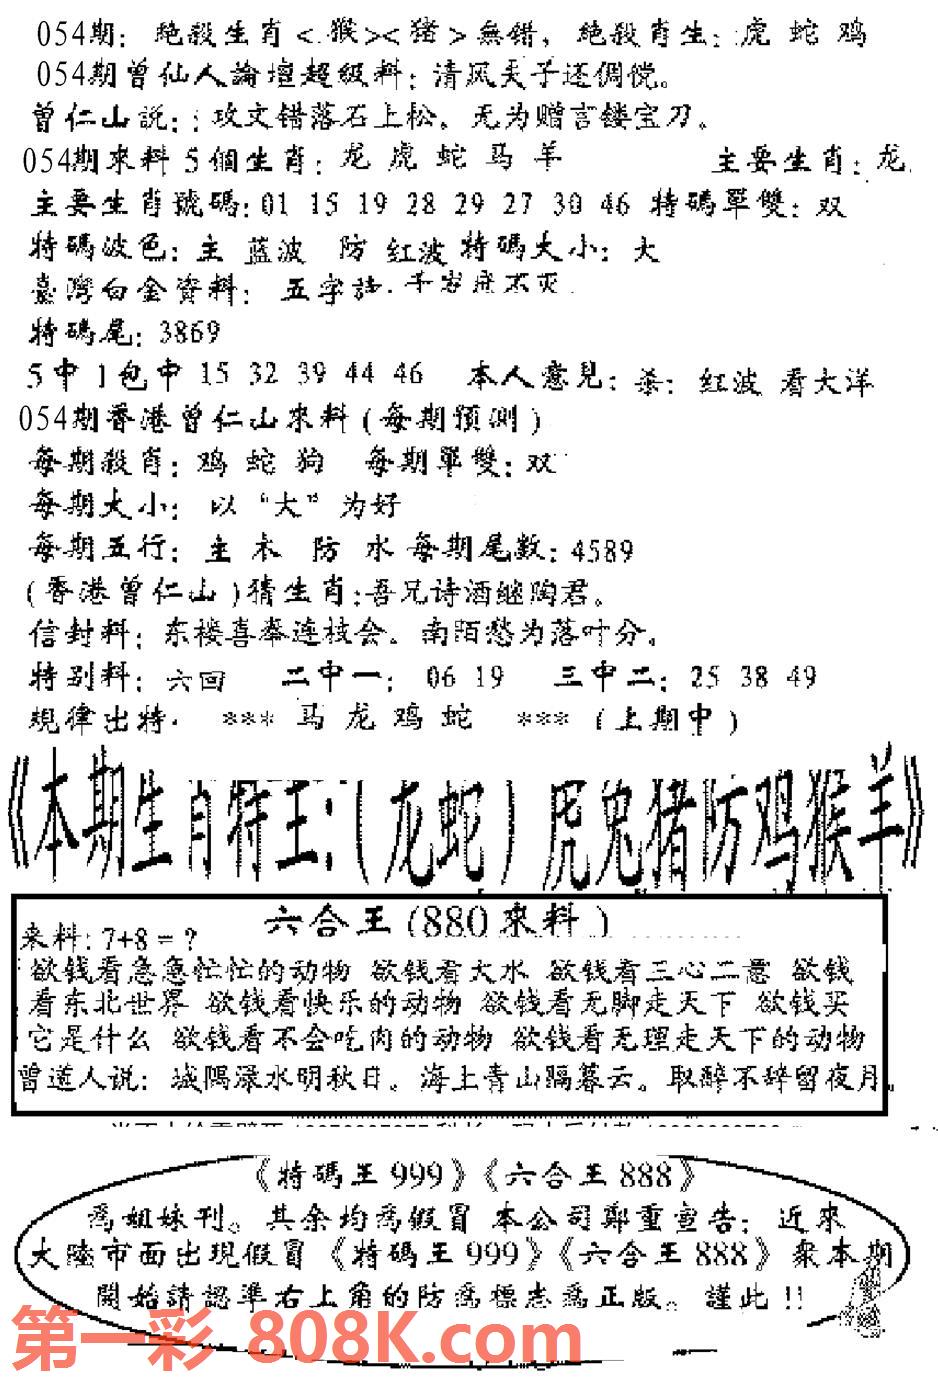 054期: 絶殺生肖<.猴><猪>無错, 絶殺肖生: 虎 蛇 鸡
054期曾仙人論壇超級料: 清风天子还倜傥。
曾仁山説: 攻文错落石上松。无为赠言镂宝刀。
054期來料 5個生肖: 龙 虎 蛇 马 羊 主要生肖: 龙
主要生肖號碼: 01 15 19 28 29 27 30 46 特碼單雙: 双
特碼波色: 主 蓝波 防 红波 特碼大小: 大
臺灣白金資料: 五字詩. 千岁 不灭
特碼尾: 3869
5中1包中 15 32 39 44 46 本人意見: 杀: 红波 看大洋
054期香港曾仁山來料(每期預測)
每期殺肖: 鸡 蛇 狗 每期單雙: 双
每期大小: 以“大”为好
每期五行: 主 木 防 水 每期尾数: 4589
(香港曾仁山)猜生肖:吾兄诗酒继陶君。
信封料: 东楼喜奉连枝会。南陌愁为落叶分。
特别料: 六回 二中一: 06 19 三中二: 25 38 49
規律出特. *** 马 龙 鸡 蛇 *** (上期中)
《本期生肖特王:(龙蛇)虎兔猪防鸡猴羊》
六合王(880來料)
来料: 7+8=?
欲钱看急急忙忙的动物 欲钱看大水 欲钱看三心二意 欲钱
看东北世界 欲钱看快乐的动物 欲钱看无脚走天下 欲钱买
它是什么 欲钱看不会吃肉的动物 欲钱看无理走天下的动物
曾道人说: 城隅渌水明秋日。海上青山隔暮云。取醉不辞留夜月。
《特碼王999》《六合王888》
爲姐妹刊。其余均爲假冒 本公司鄭重宣告: 近來
大陸市面出現假冒《特碼王999》《六合王888》衆本期
開始請認準右上角的防爲標志爲正版。謹此!!
第一彩 808K.com